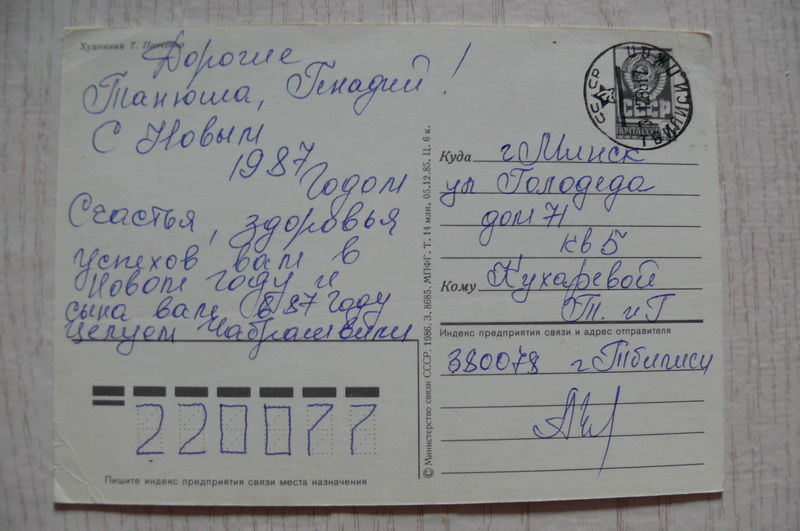 Художник Т. Панченко
Дорогие
Танюша, Генадий!
С Новым
1987
годом
Счастья, здоровья
успехов вам в
новом году и
сына вам в 87 году
Целуем Чабрашвили
220077
Пишите индекс предприятия связи места назначения
© Министерство связи СССР, 1986. З. 8685. МПФГ. Т. 14 млн. 05.12.85. Ц. 6 к.
СССР
СССР
ПОЧТА СССР
ТБИЛИСИ
Куда г. Минск
ул Голодеда
дом 71
кв 5
Кому Кухаревой
Т. и Г
Индекс предприятия связи и адрес отправителя
380078 г Тбилиси